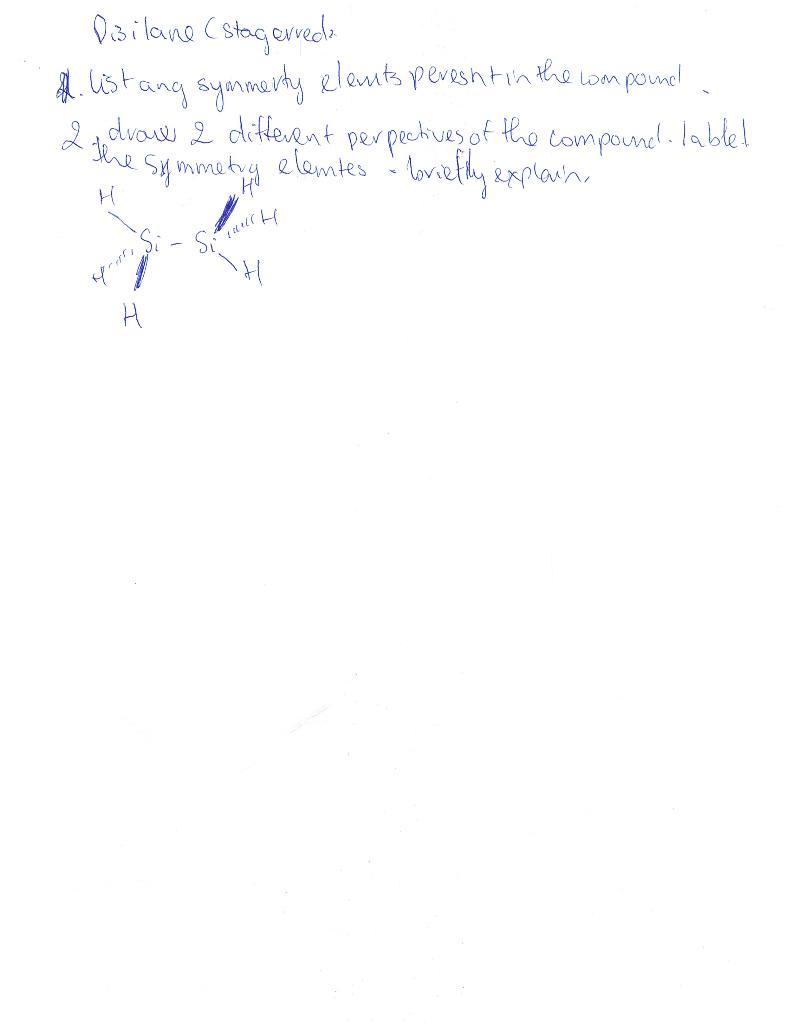 Disilane (stagerred).
1. list any symmerty elemts peresnt in the compound.
2. draw 2 different perpectives of the compound. lablel
the symmetry elemtes - brieftly explain.
H H
Si - Si H
H H
H